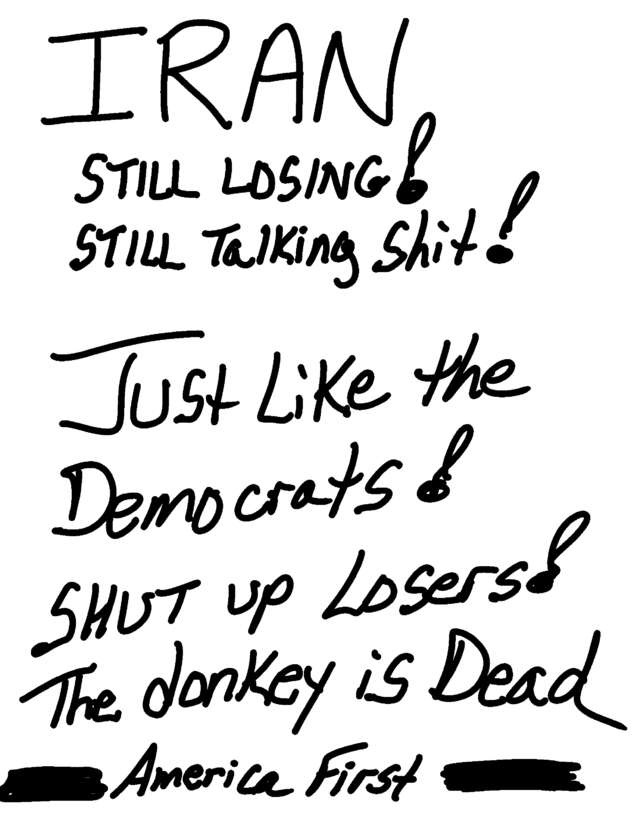 IRAN
STILL LOSING!
STILL Talking Shit!
Just Like the
Democrats!
SHUT up Losers!
The donkey is Dead
America First